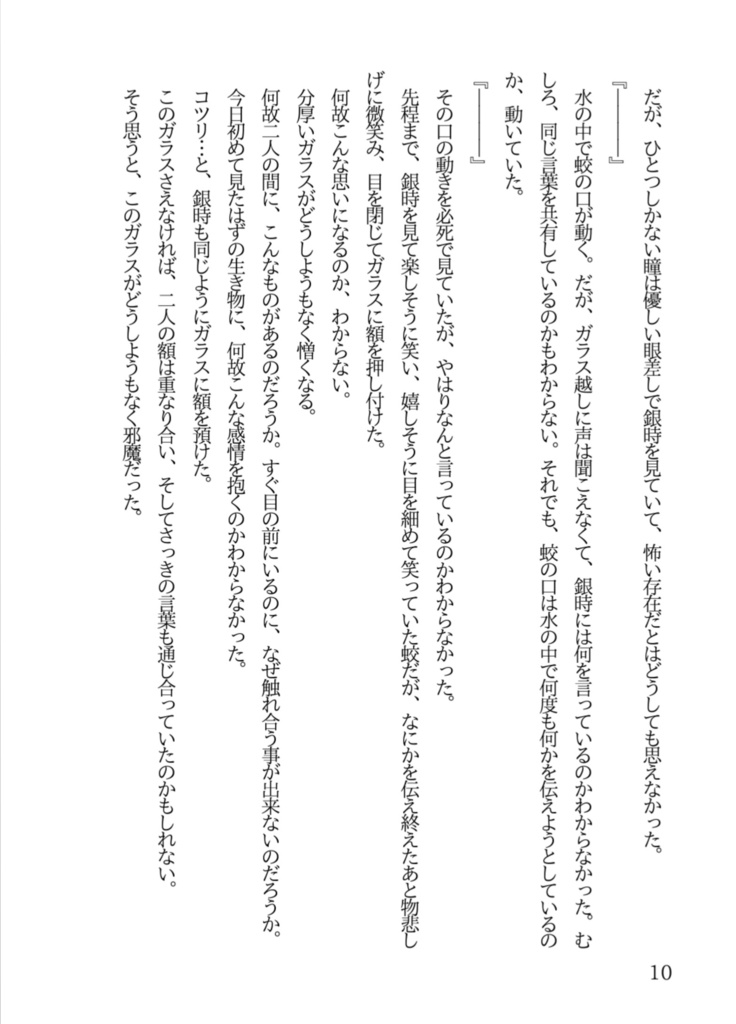 だが、ひとつしかない瞳は優しい眼差しで銀時を見ていて、怖い存在だとはどうしても思えなかった。
『――――』
水の中で蛟の口が動く。だが、ガラス越しに声は聞こえなくて、銀時には何を言っているのかわからなかった。む
しろ、同じ言葉を共有しているのかもわからない。それでも、蛟の口は水の中で何度も何かを伝えようとしているの
か、動いていた。
『――――』
その口の動きを必死で見ていたが、やはりなんと言っているのかわからなかった。
先程まで、銀時を見て楽しそうに笑い、嬉しそうに目を細めて笑っていた蛟だが、なにかを伝え終えたあと物悲し
げに微笑み、目を閉じてガラスに額を押し付けた。
何故こんな思いになるのか、わからない。
分厚いガラスがどうしようもなく憎くなる。
何故二人の間に、こんなものがあるのだろうか。すぐ目の前にいるのに、なぜ触れ合う事が出来ないのだろうか。
今日初めて見たはずの生き物に、何故こんな感情を抱くのかわからなかった。
コツリ…と、銀時も同じようにガラスに額を預けた。
このガラスさえなければ、二人の額は重なり合い、そしてさっきの言葉も通じ合っていたのかもしれない。
そう思うと、このガラスがどうしようもなく邪魔だった。
10